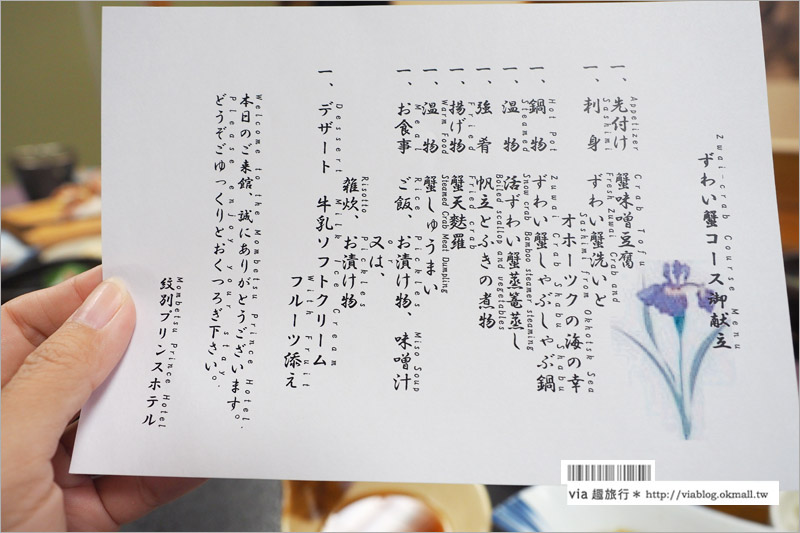 Zwai-crab Course Menu
ずわい蟹コース御献立
Appetizer Crab Tofu
一、先付け 蟹味噌豆腐
Sashimi Fresh Zuwai Crab and
一、刺身 ずわい蟹洗いと
Sashimi from Okhotsk Sea
オホーツクの海の幸
Hot Pot Zuwai Crab Shabu Shabu
一、鍋物 ずわい蟹しゃぶしゃぶ鍋
Steamed Snow crab Bamboo steamer steaming
一、温物 活ずわい蟹蒸篭蒸し
Boiled scallop and vegetables
一、強肴 帆立とふきの煮物
Fried Fried crab
一、揚げ物 蟹天麩羅
Warm Food Steamed Crab Meat Dumpling
一、温物 蟹しゅうまい
Meal Rice Pickles Miso Soup
一、お食事 ご飯、お漬け物、味噌汁
又は、
Risotto Pickles
雑炊、お漬け物
Dessert Milk Ice Cream
一、デザート 牛乳ソフトクリーム
With Fruit
フルーツ添え
Welcome to the Mombetsu Prince Hotel.
本日のご来館、誠にありがとうございます。
Please enjoy your stay.
どうぞごゆっくりとおくつろぎ下さい。
Mombetsu Prince Hotel
紋別プリンスホテル
via 趣旅行＊ http://viablog.okmall.tw